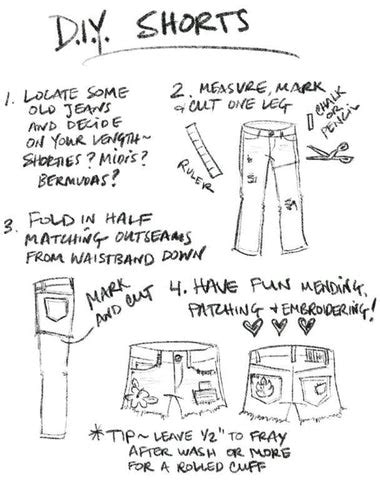 D.I.Y. SHORTS
1. LOCATE SOME
OLD JEANS
AND DECIDE
ON YOUR LENGTH~
SHORTIES? MIDIS?
BERMUDAS?
2. MEASURE, MARK
& CUT ONE LEG
CHALK OR
PENCIL
RULER
3. FOLD IN HALF
MATCHING OUTSEAMS
FROM WAISTBAND DOWN
MARK
AND CUT
4. HAVE FUN MENDING,
PATCHING + EMBROIDERING!
*TIP~ LEAVE 1/2" TO FRAY
AFTER WASH OR MORE
FOR A ROLLED CUFF